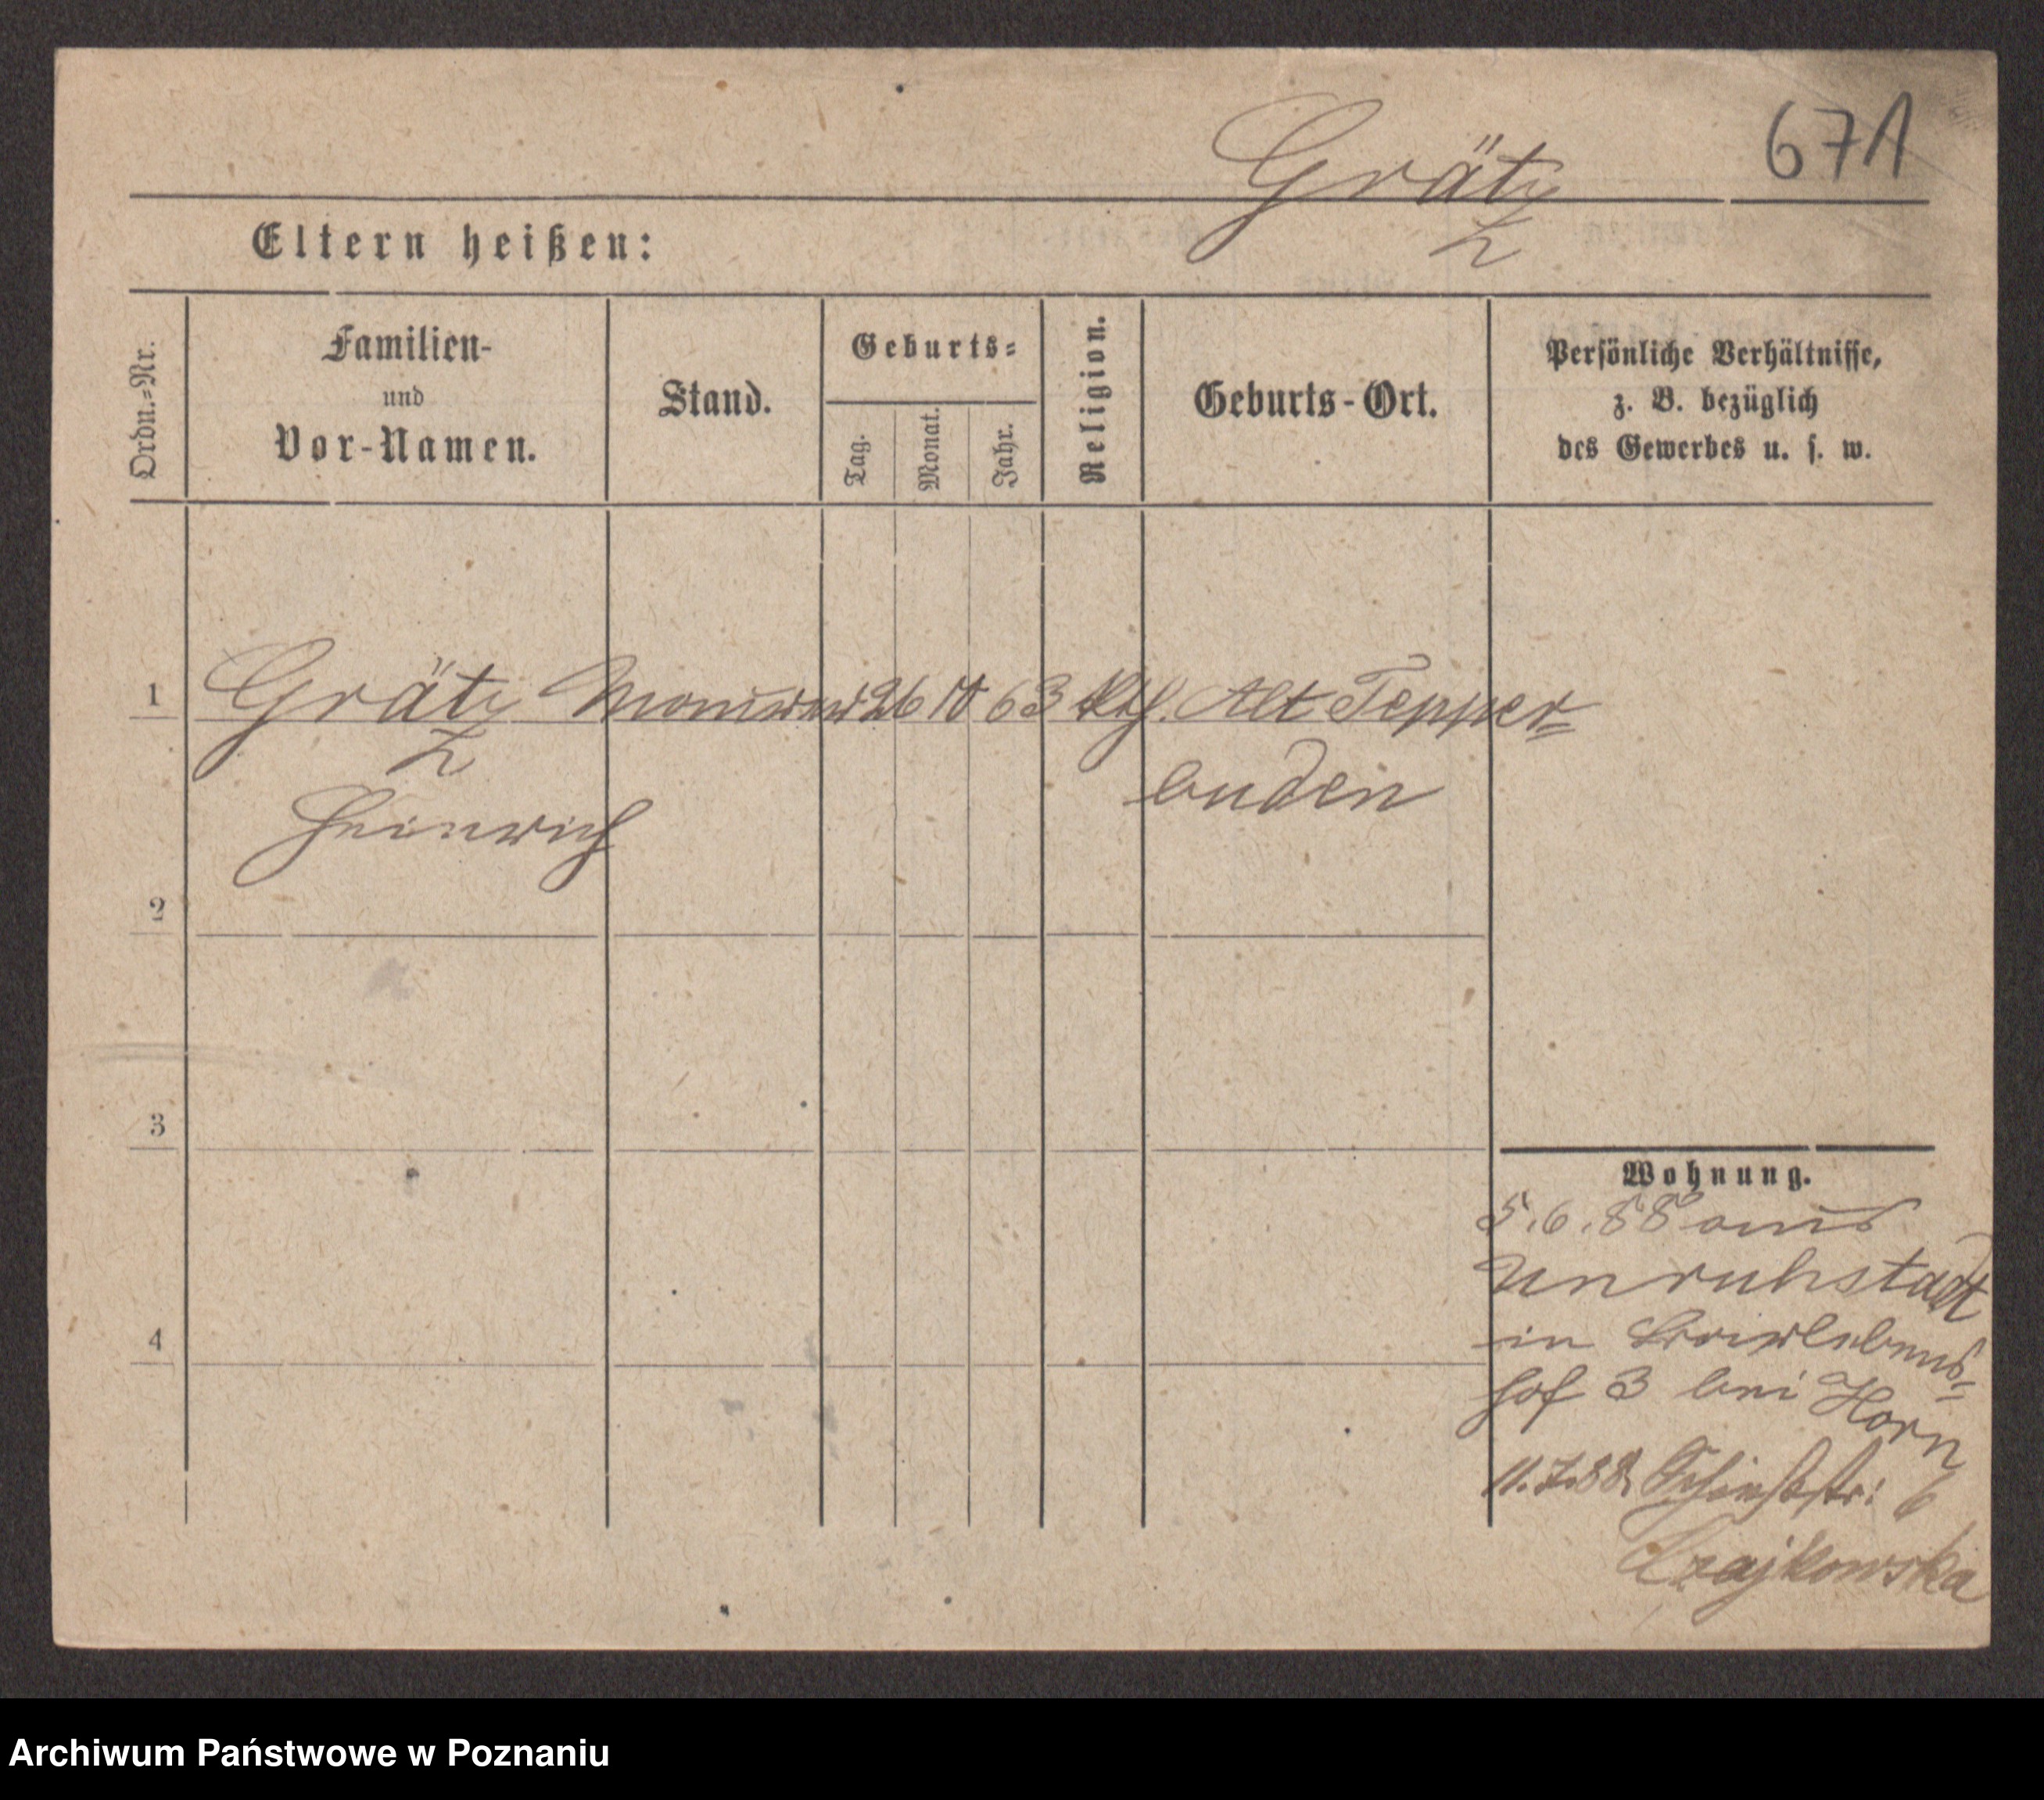 Grätz
671
Eltern heißen:
Ordn.-Nr.
Familien-
und
Vor-Namen.
Stand.
Geburts-
Tag.
Monat.
Jahr.
Religion.
Geburts-Ort.
Persönliche Verhältnisse,
z. B. bezüglich
des Gewerbes u. s. w.
1 Grätz Maurer 26 10 63 Kth. Alt Tepper=
buden
Heinrich
2
3
4
Wohnung.
5.6.88 aus
Unruhstadt
in
hof 3 bei Horn
11.7.88. 6
Czajkowska
Archiwum Państwowe w Poznaniu